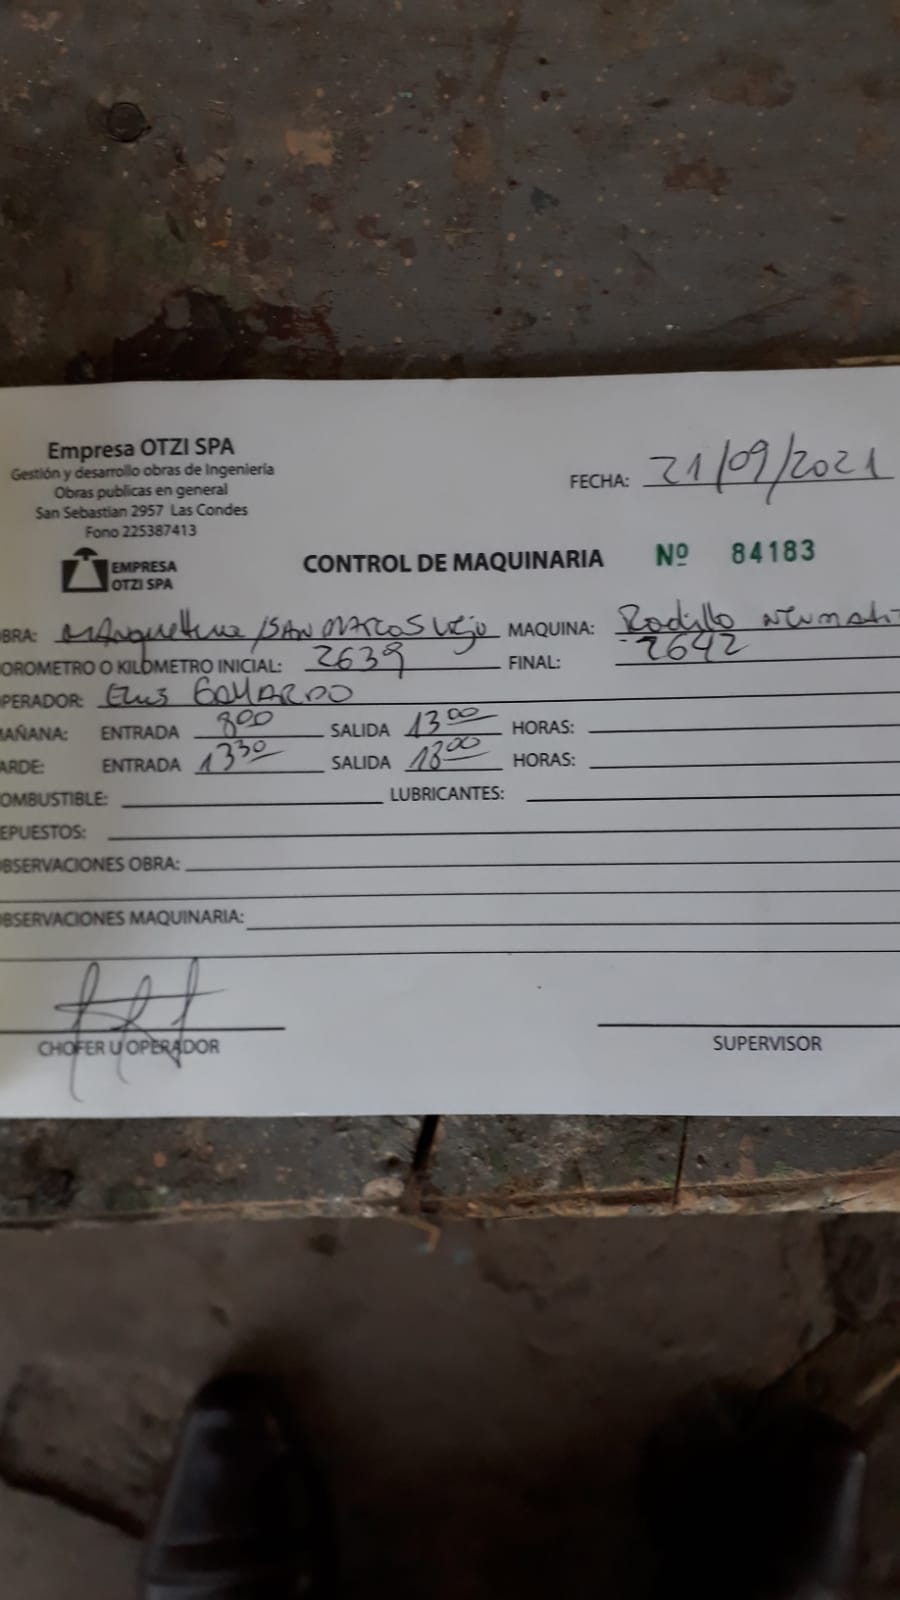 Empresa OTZI SPA
Gestión y desarrollo obras de Ingeniería
Obras publicas en general
San Sebastian 2957 Las Condes
Fono 225387413
EMPRESA
OTZI SPA
FECHA: 21/09/2021
CONTROL DE MAQUINARIA Nº 84183
BRA: /SAN MARCOS Viejo MAQUINA: Rodillo Neumati
OROMETRO O KILOMETRO INICIAL: 2639 FINAL: 2642
PERADOR: GALLARDO
AÑANA: ENTRADA 800 SALIDA 1300 HORAS:
ARDE: ENTRADA 1330 SALIDA 1800 HORAS:
OMBUSTIBLE: LUBRICANTES:
EPUESTOS:
BSERVACIONES OBRA:
BSERVACIONES MAQUINARIA:
CHOFER U OPERADOR
SUPERVISOR